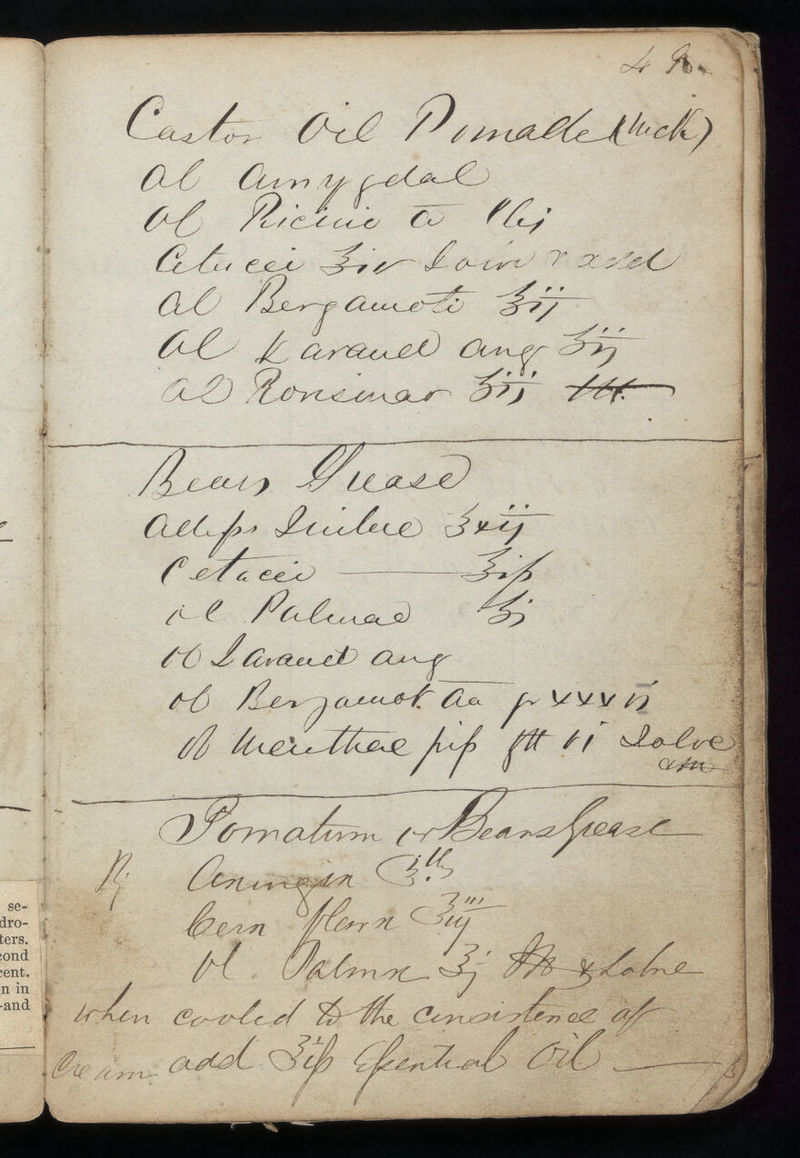 Castor Oil Pomade (Meth)
Ol Amygdal
Ol Ricini a lbj
Cetacei ℥iv Solve & add
Ol Bergamoti ℥iij
Ol Lavand ang ℥iij
Ol Rorismar ℥iij
Bears Grease
Adeps Suillae ℥xij
Cetacei ℥iß
ol Palmae ℥j
ol Lavand ang
ol Bergamot aa gr xxxvj
ol Menthae pip gtt vj Solve
Pomatum or Bears Grease
Rx Axungia
Cera flava ℥iij
Ol Palma ℥j & Solve
when cooled to the consistence of
Cream add ℥iß Essential Oil
se-
dro-
ters.
cond
cent.
n in
-and